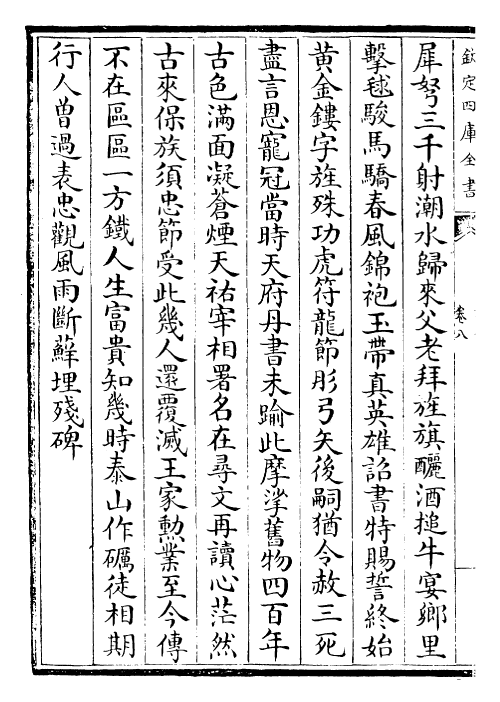 欽定四庫全書
卷八
犀弩三千射潮水歸來父老拜旌旗釃酒搥牛宴鄉里
擊毬駿馬驕春風錦袍玉帶真英雄詔書特賜誓終始
黃金鏤字旌殊功虎符龍節彤弓矢後嗣猶令赦三死
盡言恩寵冠當時天府丹書未踰此摩挲舊物四百年
古色滿面凝蒼煙天祐宰相署名在尋文再讀心茫然
古來保族須忠節受此幾人還覆滅王家勲業至今傳
不在區區一方鐵人生富貴知幾時泰山作礪徒相期
行人曾過表忠觀風雨斷蘚埋殘碑